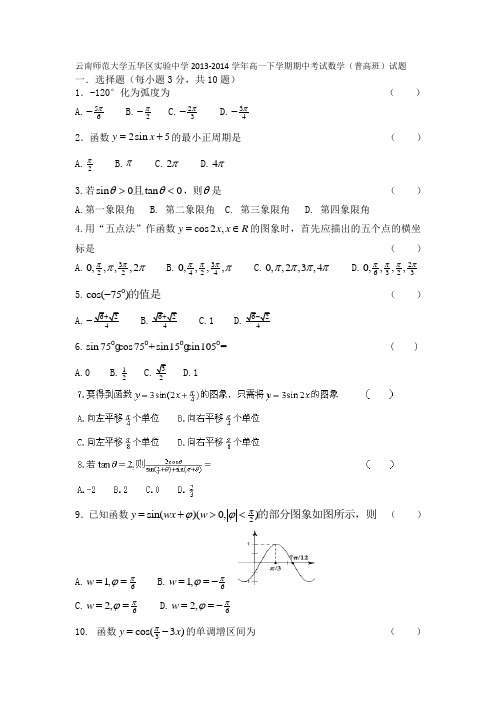 云南师范大学五华区实验中学2013-2014学年高一下学期期中考试数学（普高班）试题
一．选择题（每小题3分，共10题）
1．-120°化为弧度为 （ ）
A.-5π/6 B.-π/2 C.-2π/3 D.-3π/4
2．函数y=2sin x+5的最小正周期是 （ ）
A.π/2 B.π C.2π D.4π
3.若sinθ>0且tanθ<0，则θ是 （ ）
A.第一象限角 B. 第二象限角 C. 第三象限角 D. 第四象限角
4.用“五点法”作函数y=cos2x,x∈R的图象时，首先应描出的五个点的横坐
标是 （ ）
A.0,π/2,π,3π/2,2π B.0,π/4,π/2,3π/4,π C.0,π,2π,3π,4π D.0,π/6,π/3,π/2,2π/3
5.cos(-75⁰)的值是 （ ）
A.-(√6+√2)/4 B.(√6+√2)/4 C.1 D.(√6-√2)/4
6.sin75⁰gcos75⁰+sin15⁰gsin105⁰= ( )
A.0 B.1/2 C.√3/2 D.1
7.要得到函数y=3sin(2x+π/4)的图象，只需将y=3sin2x的图象 （ ）
A.向左平移π/4个单位 B.向右平移π/4个单位
C.向左平移π/8个单位 D.向右平移π/8个单位
8.若tanθ=2,则2cosθ/(sin(π/2+θ)+sin(π+θ))= （ ）
A.-2 B.2 C.0 D.2/3
9．已知函数y=sin(wx+φ)(w>0,|φ|<π/2)的部分图象如图所示，则 （ ）
1
π/3
7π/12
-1
A.w=1,φ=π/6 B.w=1,φ=-π/6
C.w=2,φ=π/6 D.w=2,φ=-π/6
10. 函数y=cos(π/3-3x)的单调增区间为 （ ）